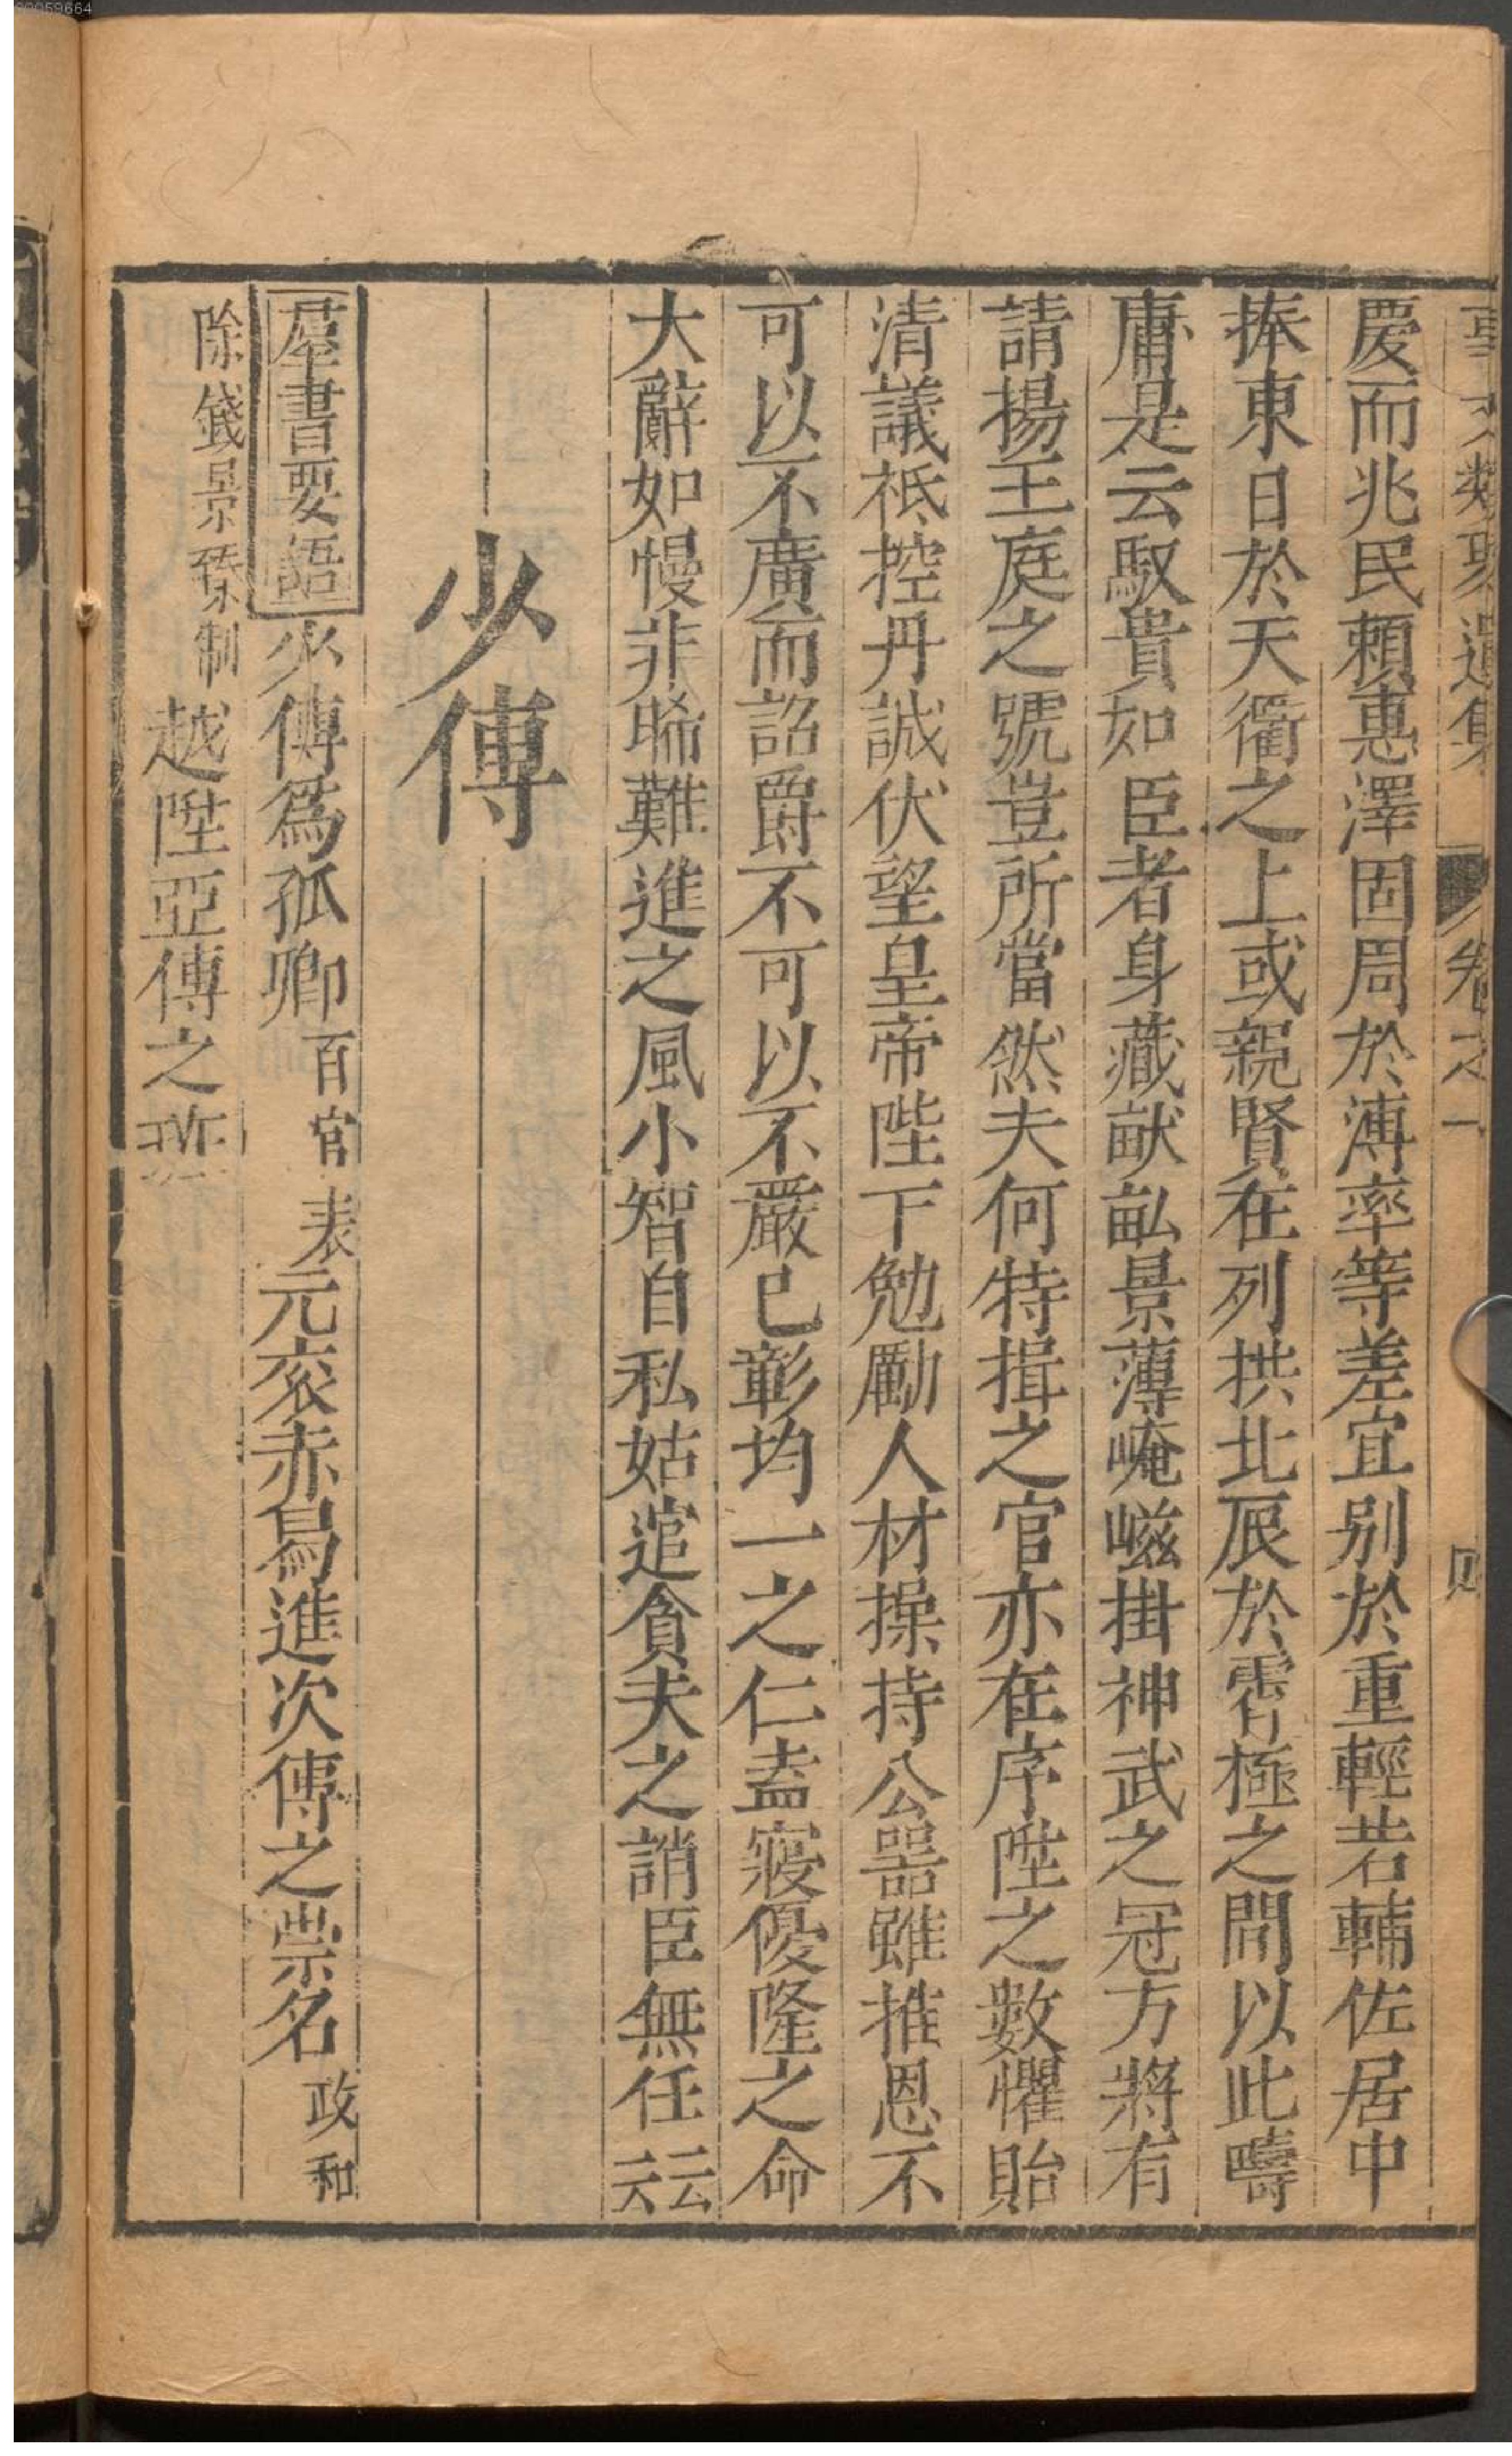 事文類聚遺集 卷之一
慶而兆民賴惠澤固周於溥率等差宜别於重輕若輔佐居中
捧東日於天衢之上或親賢在列拱北辰於霄極之間以此疇
庸是云馭貴如臣者身藏畎畝景薄崦嵫掛神武之冠方將有
請揚王庭之號豈所當然夫何特揖之官亦在序陞之數懼貽
清議祗控丹誠伏望皇帝陛下勉勵人材操持公器雖推恩不
可以不廣而詔爵不可以不嚴已彰均一之仁盍寢優隆之命
大辭如慢非晞難進之風小智自私姑逭貪夫之誚臣無任云云
少傅
羣書要語 少傅爲孤卿百官表元衮赤舄進次傅之崇名政和
除錢景臻制越陞亞傅之班
00059664